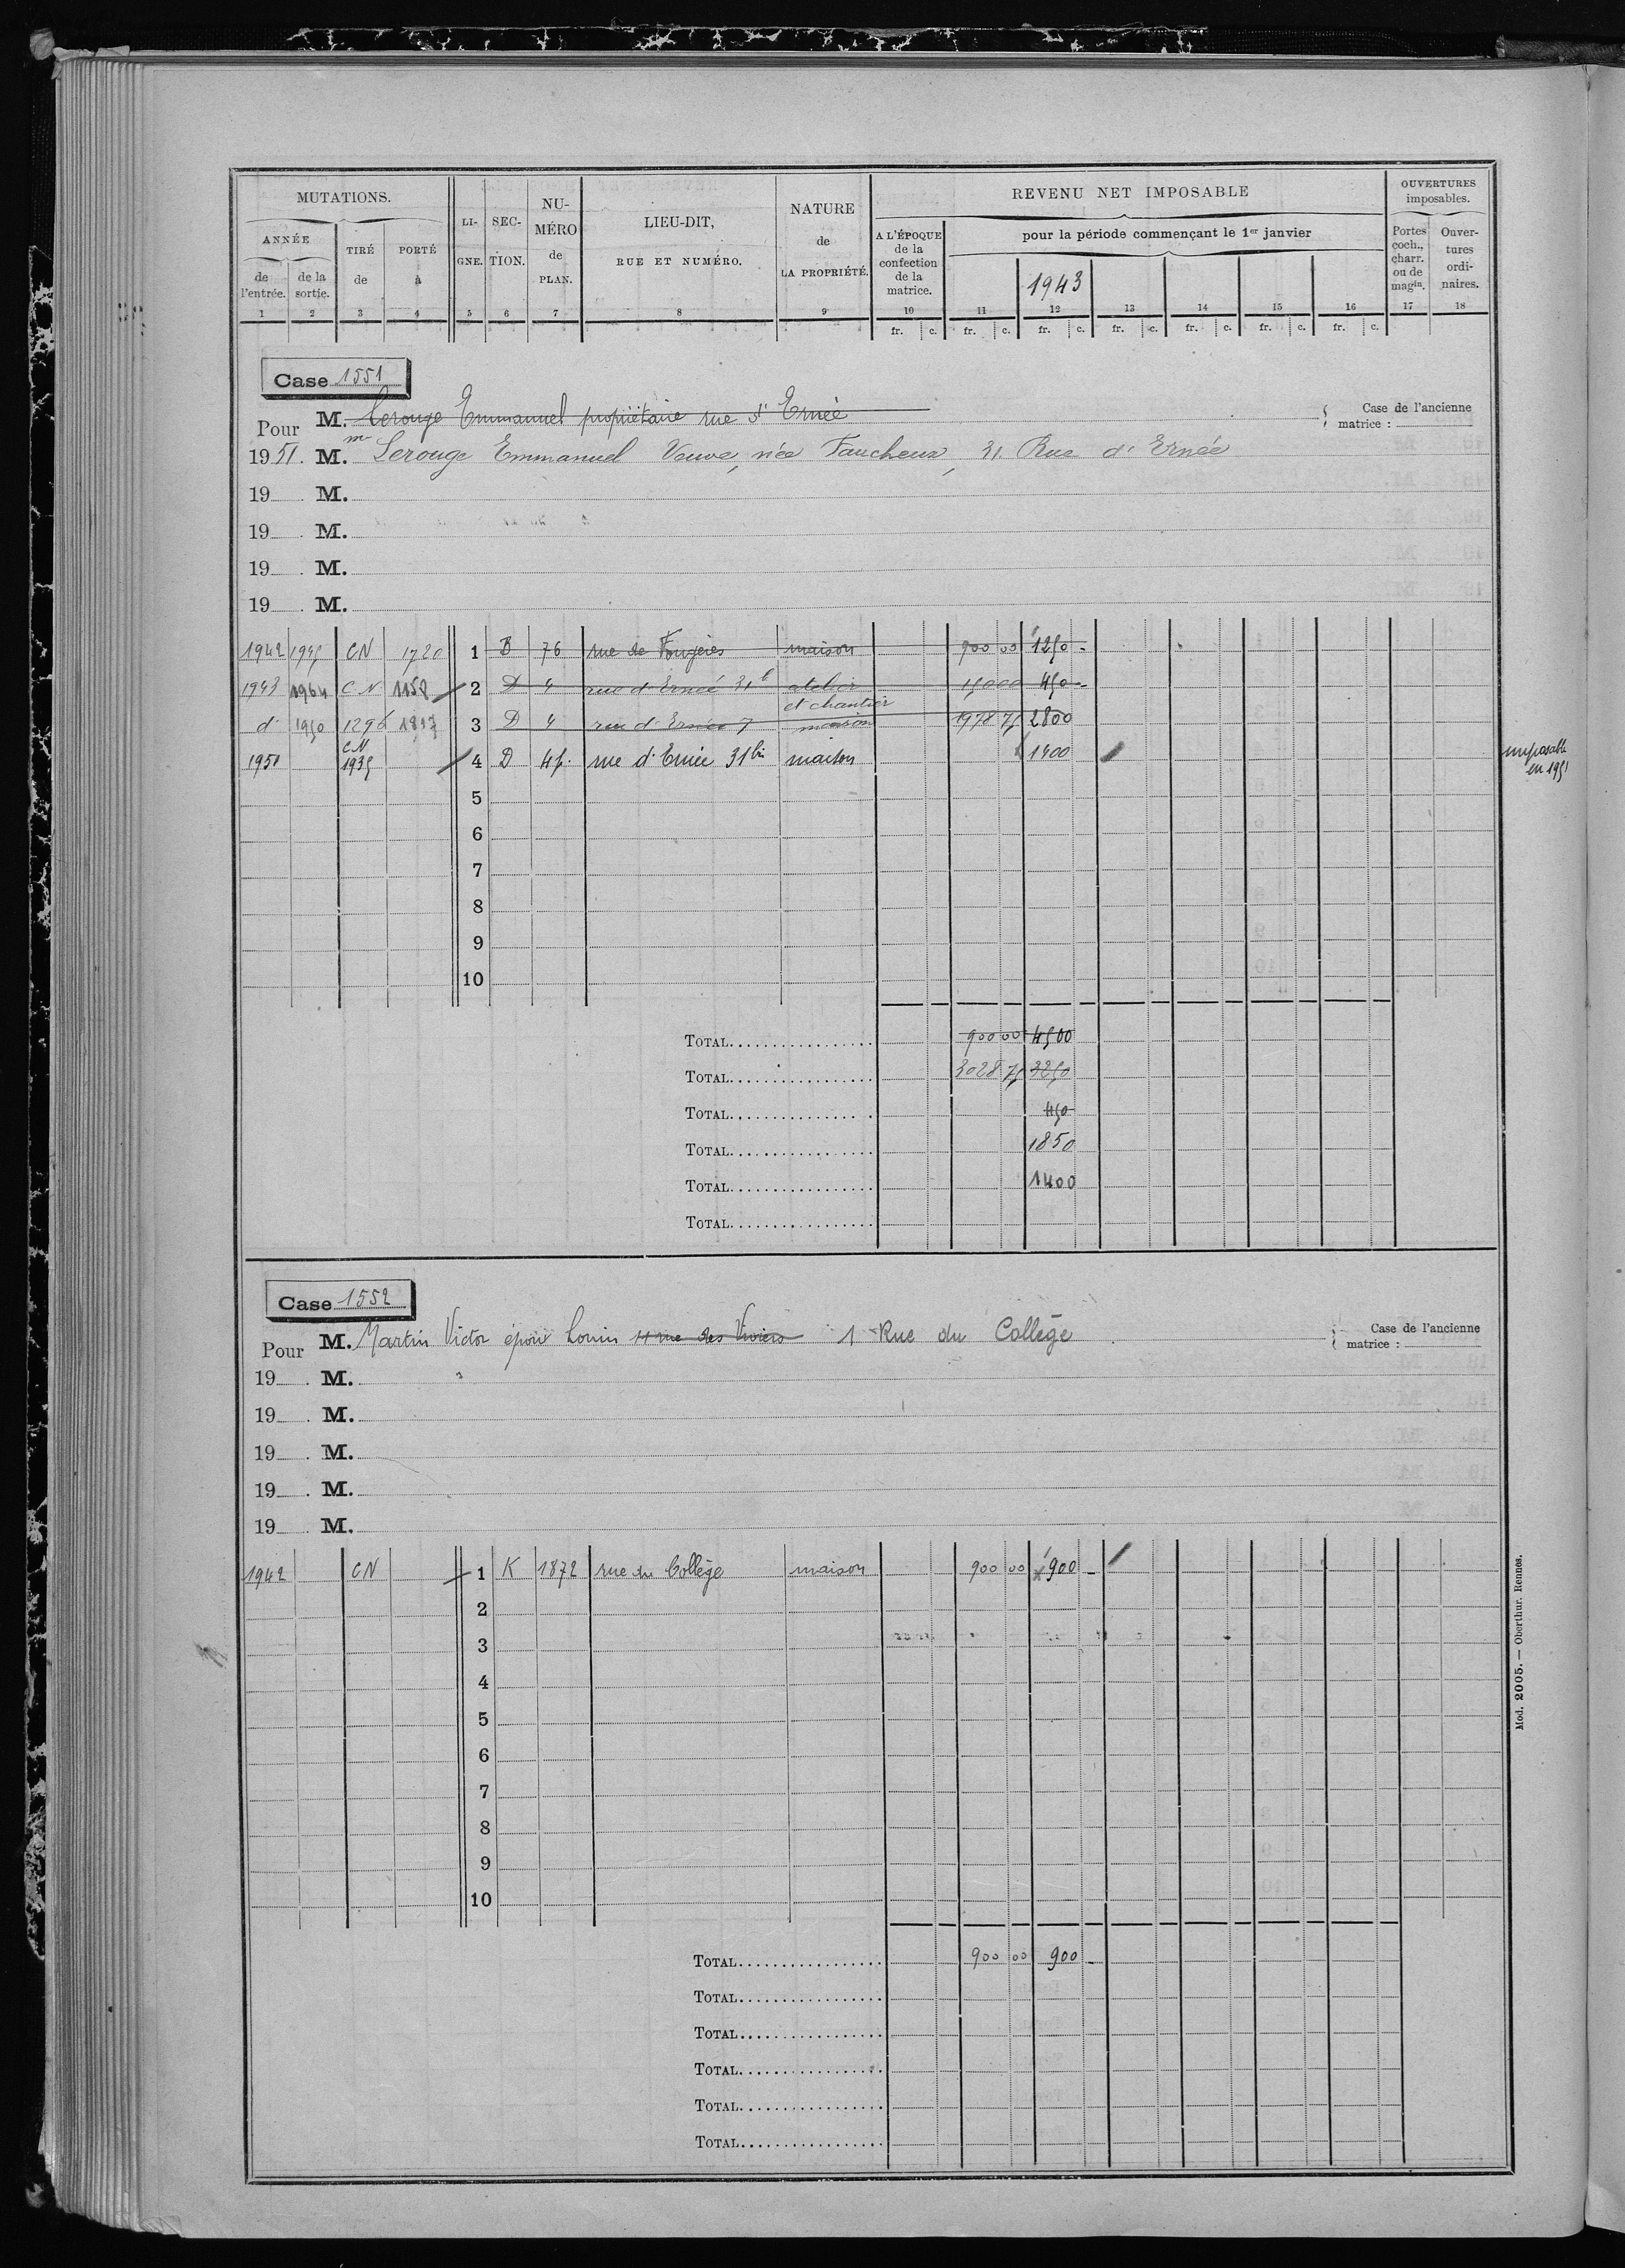 MUTATIONS. LI- SEC- NU- LIEU-DIT, NATURE REVENU NET IMPOSABLE OUVERTURES
imposables.
ANNÉE TIRÉ PORTÉ GNE. TION. MÉRO RUE ET NUMÉRO. de A L'ÉPOQUE pour la période commençant le 1er janvier Portes Ouver-
de de la de à de LA PROPRIÉTÉ. de la coch., tures
l'entrée. sortie. PLAN. confection 1943 charr. ordi-
de la ou de naires.
matrice. magin.
1 2 3 4 5 6 7 8 9 10 11 12 13 14 15 16 17 18
fr. c. fr. c. fr. c. fr. c. fr. c. fr. c. fr. c.
Case 1551
Pour M. Lerouge Emmanuel propriétaire rue d' Ernée Case de l'ancienne
matrice :
1951. M. me Lerouge Emmanuel Veuve, née Faucheux, 31 Rue d' Ernée
19 . M.
19 . M.
19 . M.
19 . M.
1942 1945 CN 1720 1 B 76 rue de Fougères maison 900 00 1250 -
1943 1964 CN 1152 2 D 4 rue d'Ernée 31b atelier et chantier 450 -
d° 1950 1296 1897 3 D 4 rue d'Ernée 7 maison 1978 75 2800
1950 CN 1935 4 D 4p. rue d'Ernée 31bis maison 1400 imposable
en 1951
5
6
7
8
9
10
TOTAL 900 00 4500
TOTAL 3028 75 3250
TOTAL 450
TOTAL 1850
TOTAL 1400
TOTAL
Case 1552
Pour M. Martin Victor époux Louin 4 rue des Viviers 1 Rue du Collège Case de l'ancienne
matrice :
19 . M.
19 . M.
19 . M.
19 . M.
19 . M.
1942 CN 1 K 1872 rue du Collège maison 900 00 900 -
2
3
4
5
6
7
8
9
10
TOTAL 900 00 900 -
TOTAL
TOTAL
TOTAL
TOTAL
TOTAL
Mod. 2005. — Oberthur. Rennes.